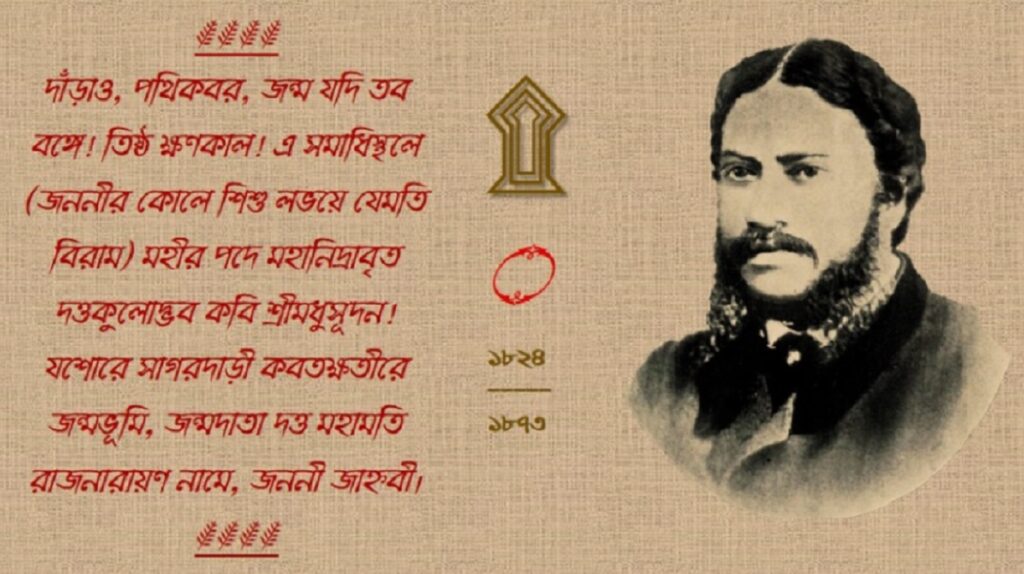 দাঁড়াও, পথিকবর, জন্ম যদি তব
বঙ্গে! তিষ্ঠ ক্ষণকাল! এ সমাধিস্থলে
(জননীর কোলে শিশু লভয়ে যেমতি
বিরাম) মহীর পদে মহানিদ্রাবৃত
দত্তকুলোদ্ভব কবি শ্রীমধুসূদন!
যশোরে সাগরদাড়ী কবতক্ষতীরে
জন্মভূমি, জন্মদাতা দত্ত মহামতি
রাজনারায়ণ নামে, জননী জাহ্নবী।
১৮২৪
১৮৭৩